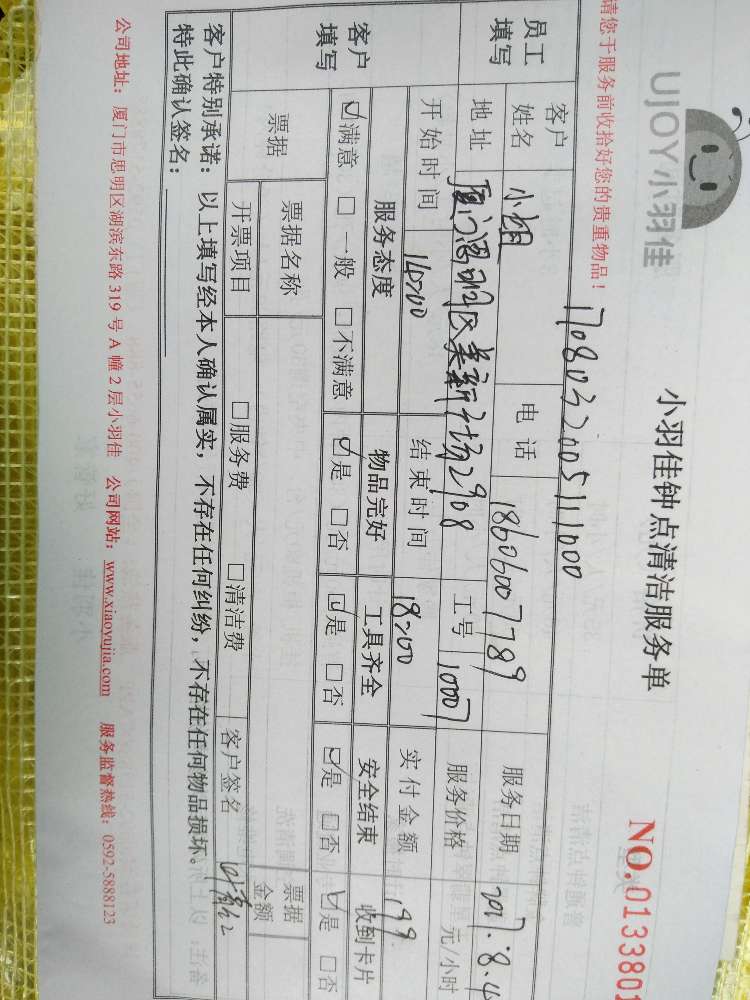 UJOY小羽佳
小羽佳钟点清洁服务单
NO.0133801
请您于服务前收拾好您的贵重物品！
1708032005111000
员工填写
客户姓名 小姐 电话 18606007789 服务日期 2017.8.4
地址 厦门思明区美新广场2908 工号 10007 服务价格 元/小时
客户填写
开始时间 14:00 结束时间 18:00 实付金额 199
服务态度 物品完好 工具齐全 安全结束 收到卡片
☑满意 □一般 □不满意 ☑是 □否 ☑是 □否 ☑是 □否 ☑是 □否
票据 票据名称 票据金额
开票项目 □服务费 □清洁费 客户签名
客户特别承诺：以上填写经本人确认属实，不存在任何纠纷，不存在任何物品损坏。
特此确认签名：
公司地址：厦门市思明区湖滨东路 319 号 A 幢 2 层小羽佳 公司网站：www.xiaoyujia.com 服务监督热线：0592-5888123